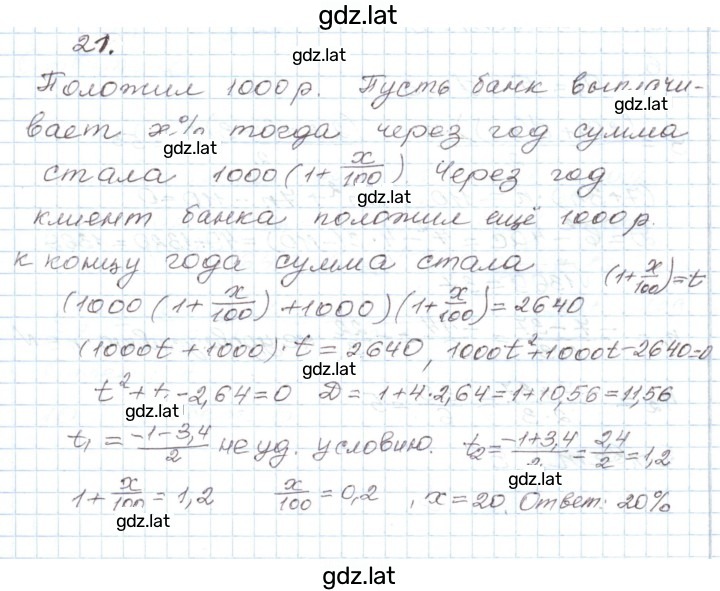 gdz.lat
21.
gdz.lat
Положил 1000 р. Пусть банк выплачи-
gdz.lat
вает x% тогда через год сумма
gdz.lat
стала 1000(1+x/100). Через год
gdz.lat
клиент банка положил ещё 1000 р.
к концу года сумма стала (1+x/100)=t
(1000(1+x/100)+1000)(1+x/100)=2640
(1000t+1000)·t=2640, 1000t²+1000t-2640=0
gdz.lat
t²+t-2,64=0 D=1+4·2,64=1+10,56=11,56
gdz.lat
t₁=(-1-3,4)/2 не уд. условию. t₂=(-1+3,4)/2=2,4/2=1,2
gdz.lat
1+x/100=1,2 x/100=0,2, x=20. Ответ: 20%
gdz.lat
gdz.lat